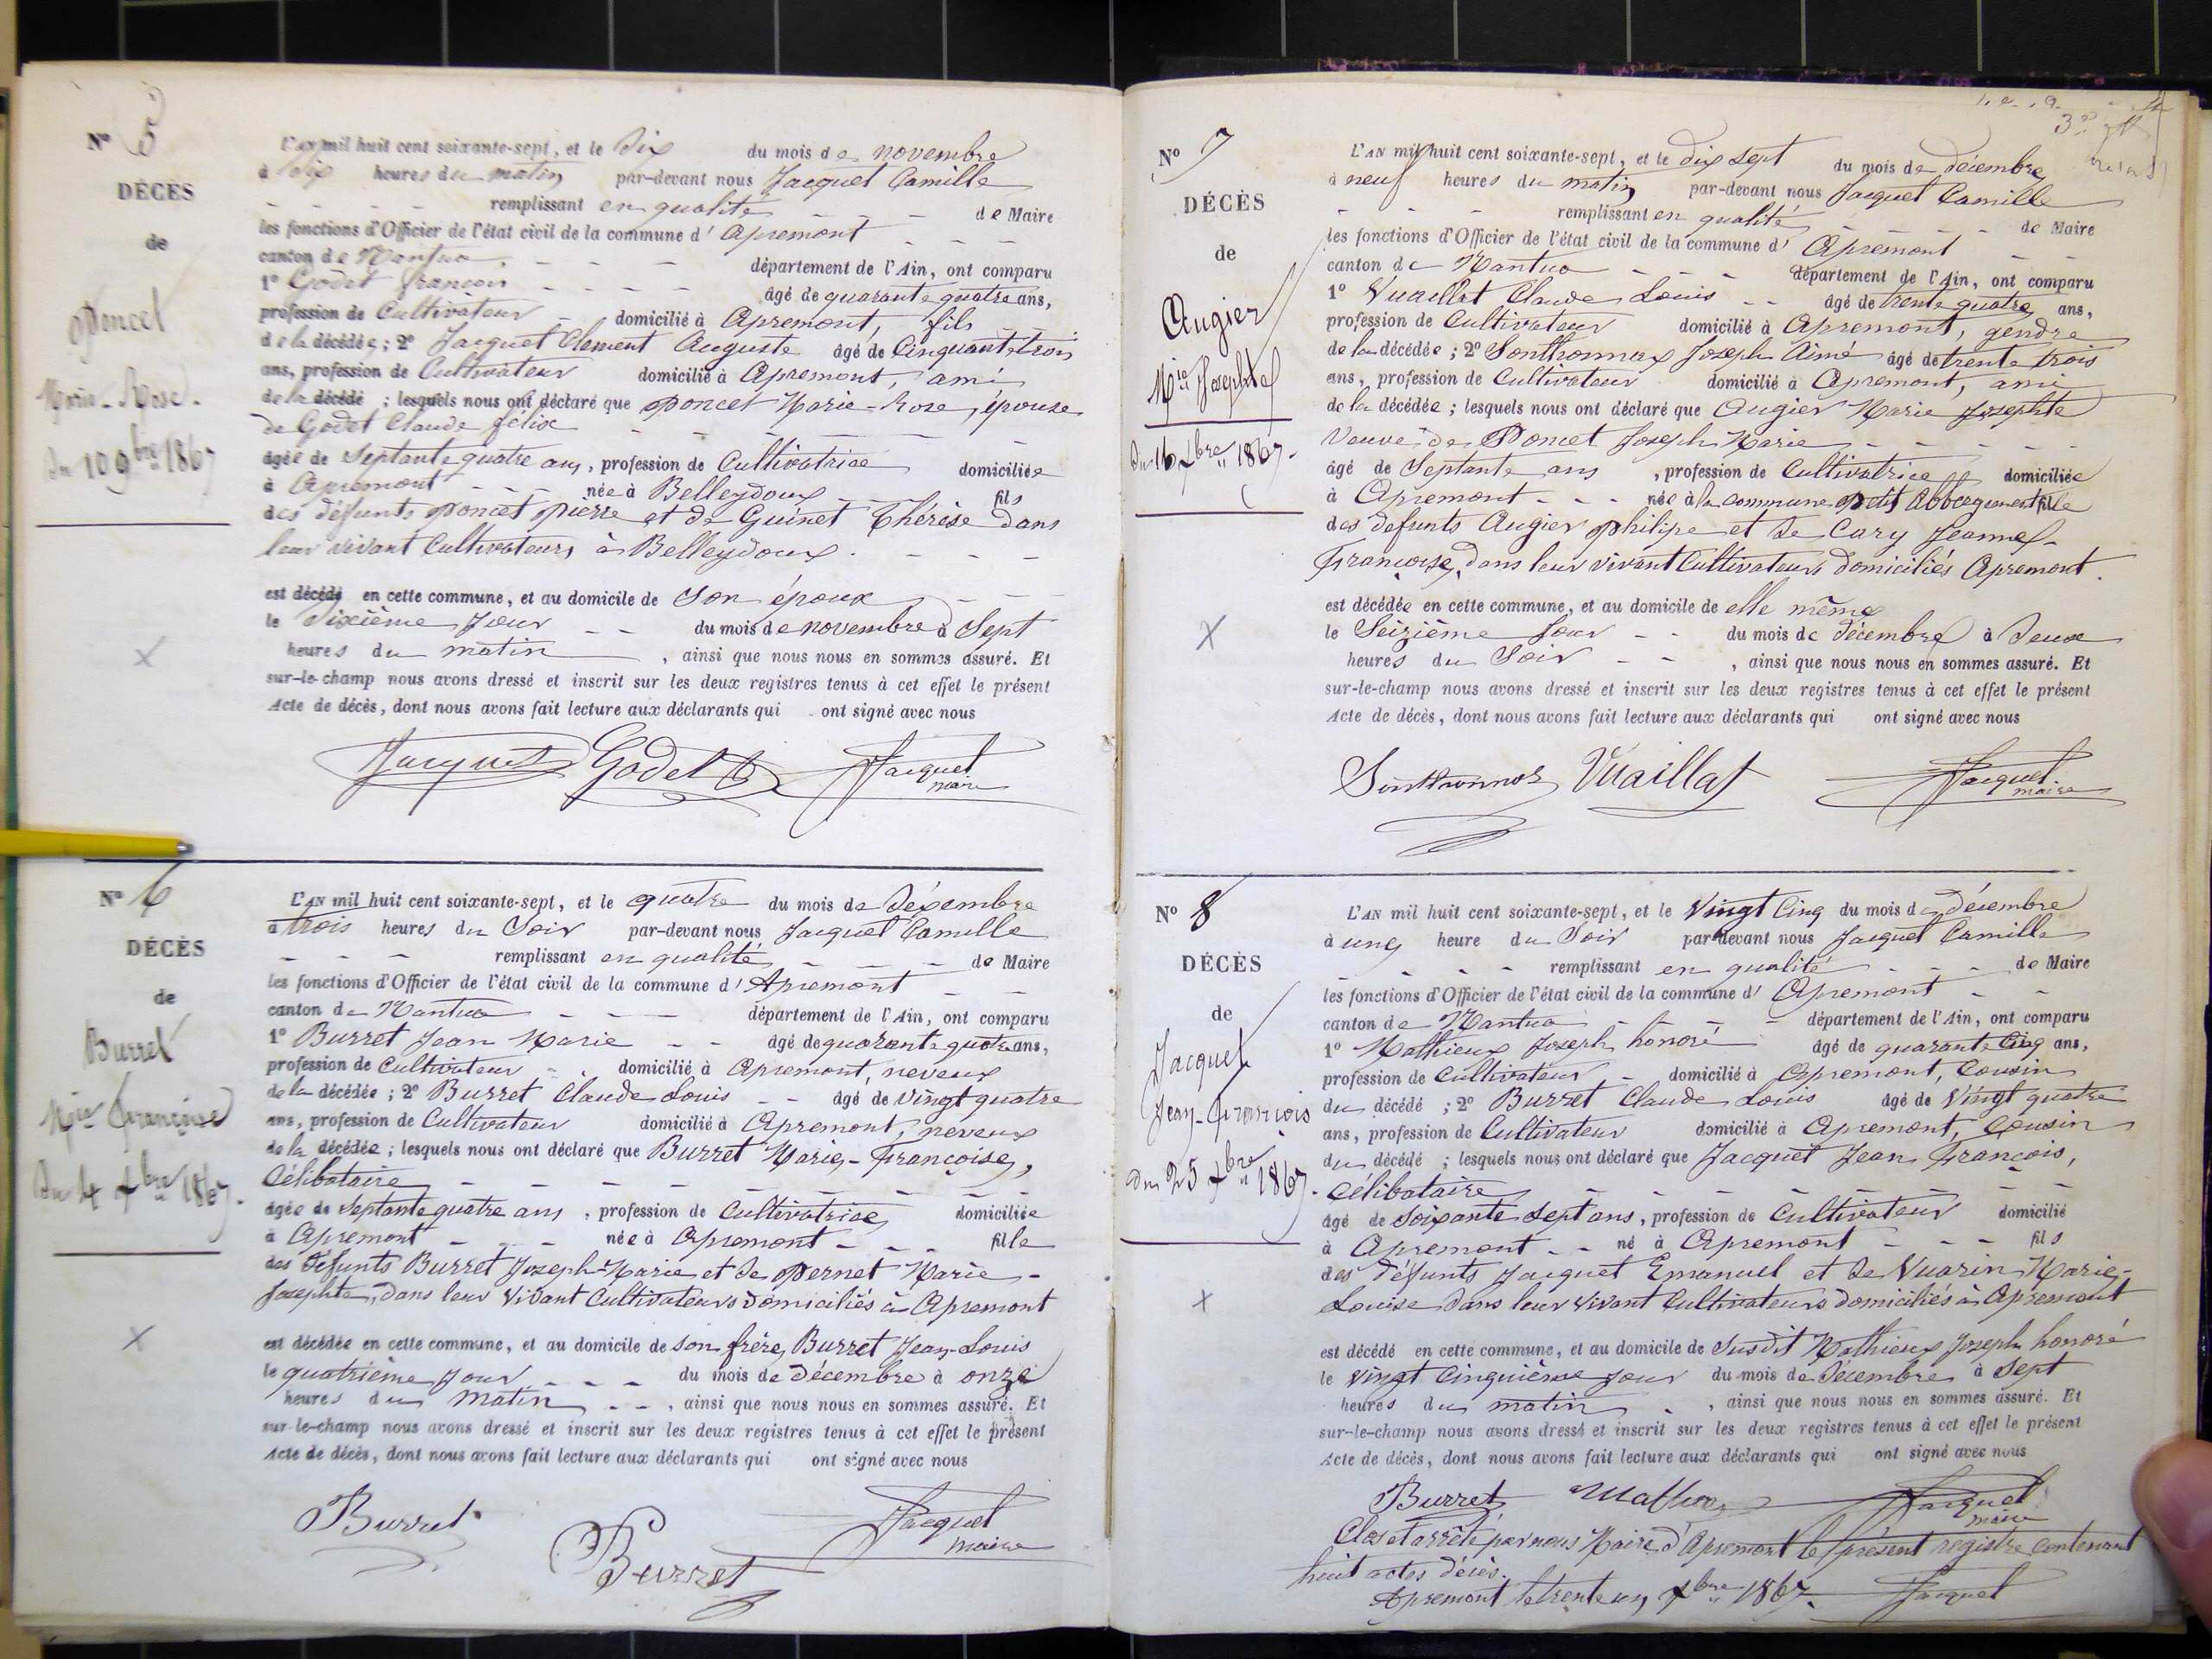 Nº 5
DÉCÈS
de
Poncet
Marie-Rose.
du 10 9bre 1867
L'AN mil huit cent soixante-sept, et le dix du mois de novembre
à dix heures du matin par-devant nous Jacquet Camille
remplissant en qualité de Maire
les fonctions d'Officier de l'état civil de la commune d' Apremont
canton de Nantua département de l'Ain, ont comparu
1º Godet françois âgé de quarante quatre ans,
profession de Cultivateur domicilié à Apremont, fils
de la décédée; 2º Jacquet Clement Auguste âgé de Cinquante trois
ans, profession de Cultivateur domicilié à Apremont, ami
de la décédé ; lesquels nous ont déclaré que Poncet Marie-Rose, épouse
de Godet Claude félix
âgée de Septante quatre ans, profession de Cultivatrice domiciliée
à Apremont née à Belleydoux fils
des défunts Poncet Pierre et de Guinet Thérèse dans
leur vivant Cultivateurs à Belleydoux.
est décédé en cette commune, et au domicile de Son époux
le dixième jour du mois de novembre à Sept
heures du matin, ainsi que nous nous en sommes assuré. Et
sur-le-champ nous avons dressé et inscrit sur les deux registres tenus à cet effet le présent
Acte de décès, dont nous avons fait lecture aux déclarants qui ont signé avec nous
Jacquet Godet Jacquet
maire
Nº 6
DÉCÈS
de
Burret
Mie Françoise
du 4 Xbre 1867.
L'AN mil huit cent soixante-sept, et le quatre du mois de décembre
à trois heures du Soir par-devant nous Jacquet Camille
remplissant en qualité de Maire
les fonctions d'Officier de l'état civil de la commune d' Apremont
canton de Nantua département de l'Ain, ont comparu
1º Burret Jean Marie âgé de quarante quatre ans,
profession de Cultivateur domicilié à Apremont, neveux
de la décédée; 2º Burret Claude Louis âgé de vingt quatre
ans, profession de Cultivateur domicilié à Apremont, neveux
de la décédée; lesquels nous ont déclaré que Burret Marie-Françoise,
Célibataire
âgée de Septante quatre ans, profession de Cultivatrice domiciliée
à Apremont née à Apremont fille
des défunts Burret Joseph-Marie et de Pernet Marie-
Josephte, dans leur vivant Cultivateurs domiciliés à Apremont
est décédée en cette commune, et au domicile de son frère, Burret Jean-Louis
le quatrième jour du mois de décembre à onze
heures du matin, ainsi que nous nous en sommes assuré. Et
sur-le-champ nous avons dressé et inscrit sur les deux registres tenus à cet effet le présent
Acte de décès, dont nous avons fait lecture aux déclarants qui ont signé avec nous
Burret Burret Jacquet
maire
Nº 7
DÉCÈS
de
Augier
Mie Josephte
du 16 Xbre 1867.
L'AN mil huit cent soixante-sept, et le dix sept du mois de décembre
à neuf heures du matin par-devant nous Jacquet Camille
remplissant en qualité de Maire
les fonctions d'Officier de l'état civil de la commune d' Apremont
canton de Nantua département de l'Ain, ont comparu
1º Vuaillat Claude Louis âgé de trente quatre ans,
profession de Cultivateur domicilié à Apremont, gendre
de la décédée; 2º Sonthonnax Joseph Aimé âgé de trente trois
ans, profession de Cultivateur domicilié à Apremont, ami
de la décédée; lesquels nous ont déclaré que Augier Marie Josephte
Veuve de Poncet Joseph Marie
âgé de Septante ans, profession de Cultivatrice domiciliée
à Apremont née à la commune petit Abbergement fille
des défunts Augier philipe et de Cary Jeanne-
Françoise, dans leur vivant Cultivateurs domiciliés Apremont.
est décédée en cette commune, et au domicile de elle même
le Seizième Jour du mois de décembre à deux
heures du Soir, ainsi que nous nous en sommes assuré. Et
sur-le-champ nous avons dressé et inscrit sur les deux registres tenus à cet effet le présent
Acte de décès, dont nous avons fait lecture aux déclarants qui ont signé avec nous
Sonthonnax Vuaillat Jacquet
maire
Nº 8
DÉCÈS
de
Jacquet
Jean-François
du 25 Xbre 1867.
L'AN mil huit cent soixante-sept, et le Vingt Cinq du mois de décembre
à une heure du Soir par-devant nous Jacquet Camille
remplissant en qualité de Maire
les fonctions d'Officier de l'état civil de la commune d' Apremont
canton de Nantua département de l'Ain, ont comparu
1º Mathieux Joseph honoré âgé de quarante Cinq ans,
profession de Cultivateur domicilié à Apremont, Cousin
du décédé ; 2º Burret Claude Louis âgé de Vingt quatre
ans, profession de Cultivateur domicilié à Apremont, Cousin
du décédé ; lesquels nous ont déclaré que Jacquet Jean François,
Célibataire
âgé de Soixante Sept ans, profession de Cultivateur domicilié
à Apremont né à Apremont fils
des défunts Jacquet Emanuel et de Vuarin Marie-
Louise dans leur vivant Cultivateurs domiciliés à Apremont
est décédé en cette commune, et au domicile de Susdit Mathieux Joseph honoré
le Vingt Cinquième jour du mois de décembre à Sept
heures du matin, ainsi que nous nous en sommes assuré. Et
sur-le-champ nous avons dressé et inscrit sur les deux registres tenus à cet effet le présent
Acte de décès, dont nous avons fait lecture aux déclarants qui ont signé avec nous
Burret Jacquet
maire
Clos et arrêté par nous Maire d'Apremont le présent registre contenant
huit actes décès.
Apremont le trente un Xbre 1867. Jacquet